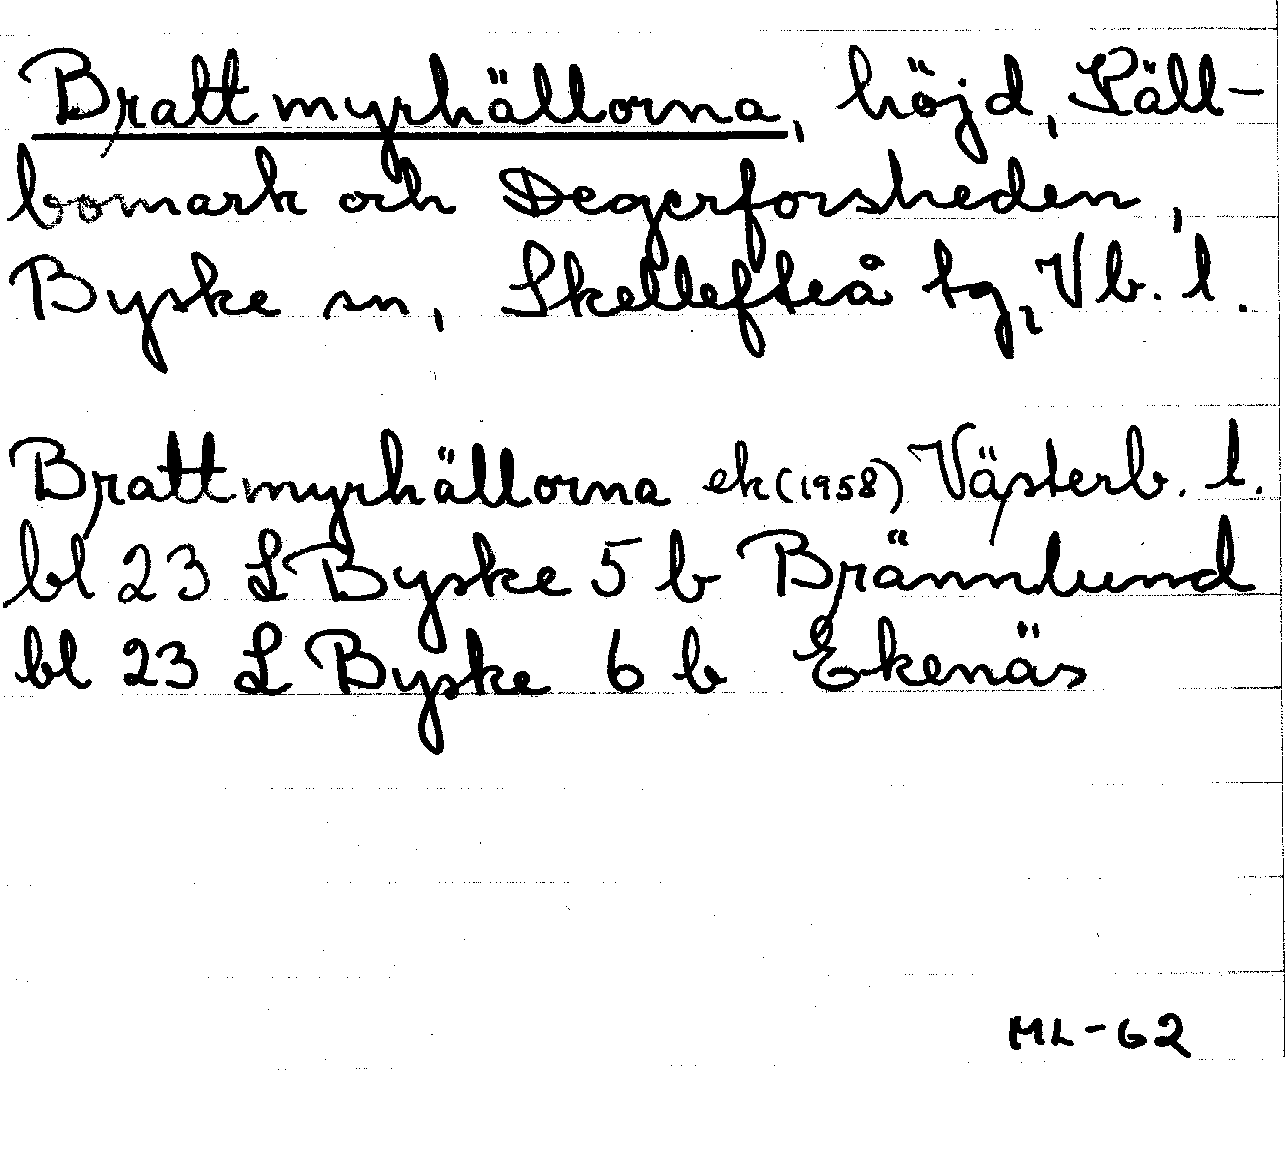 Brattmyrhällorna, höjd, Käll-
bomark och Degerforsheden,
Byske sn, Skellefteå tg, Vb. l.
Brattmyrhällorna ek (1958) Västerb. l.
bl 23 L Byske 5 b Brännlund
bl 23 L Byske 6 b Ekenäs
ML-62